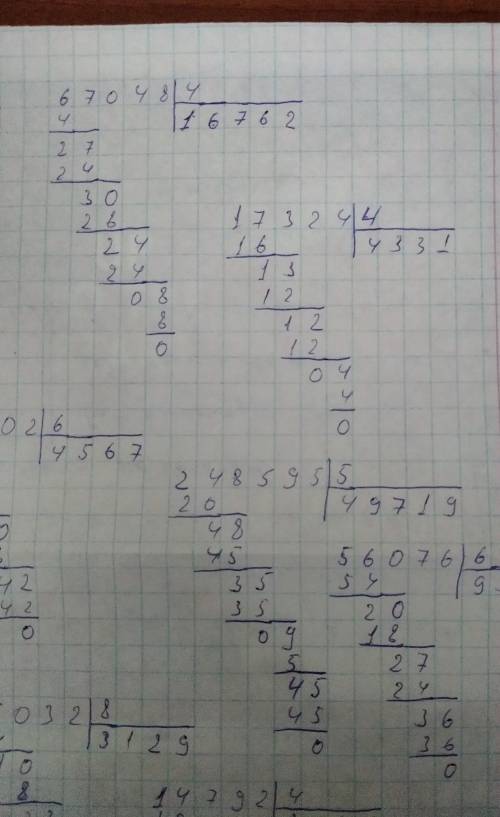 67048 4
4 16762
27
24
30
28
24
24
08
8
0
17324 4
16 4331
13
12
12
12
04
4
0
02 6
4567
42
42
0
248595 5
20 49719
48
45
35
35
09
5
45
45
0
56076 6
54 9
20
18
27
24
36
36
0
032 8
3129
0
8
14792 4